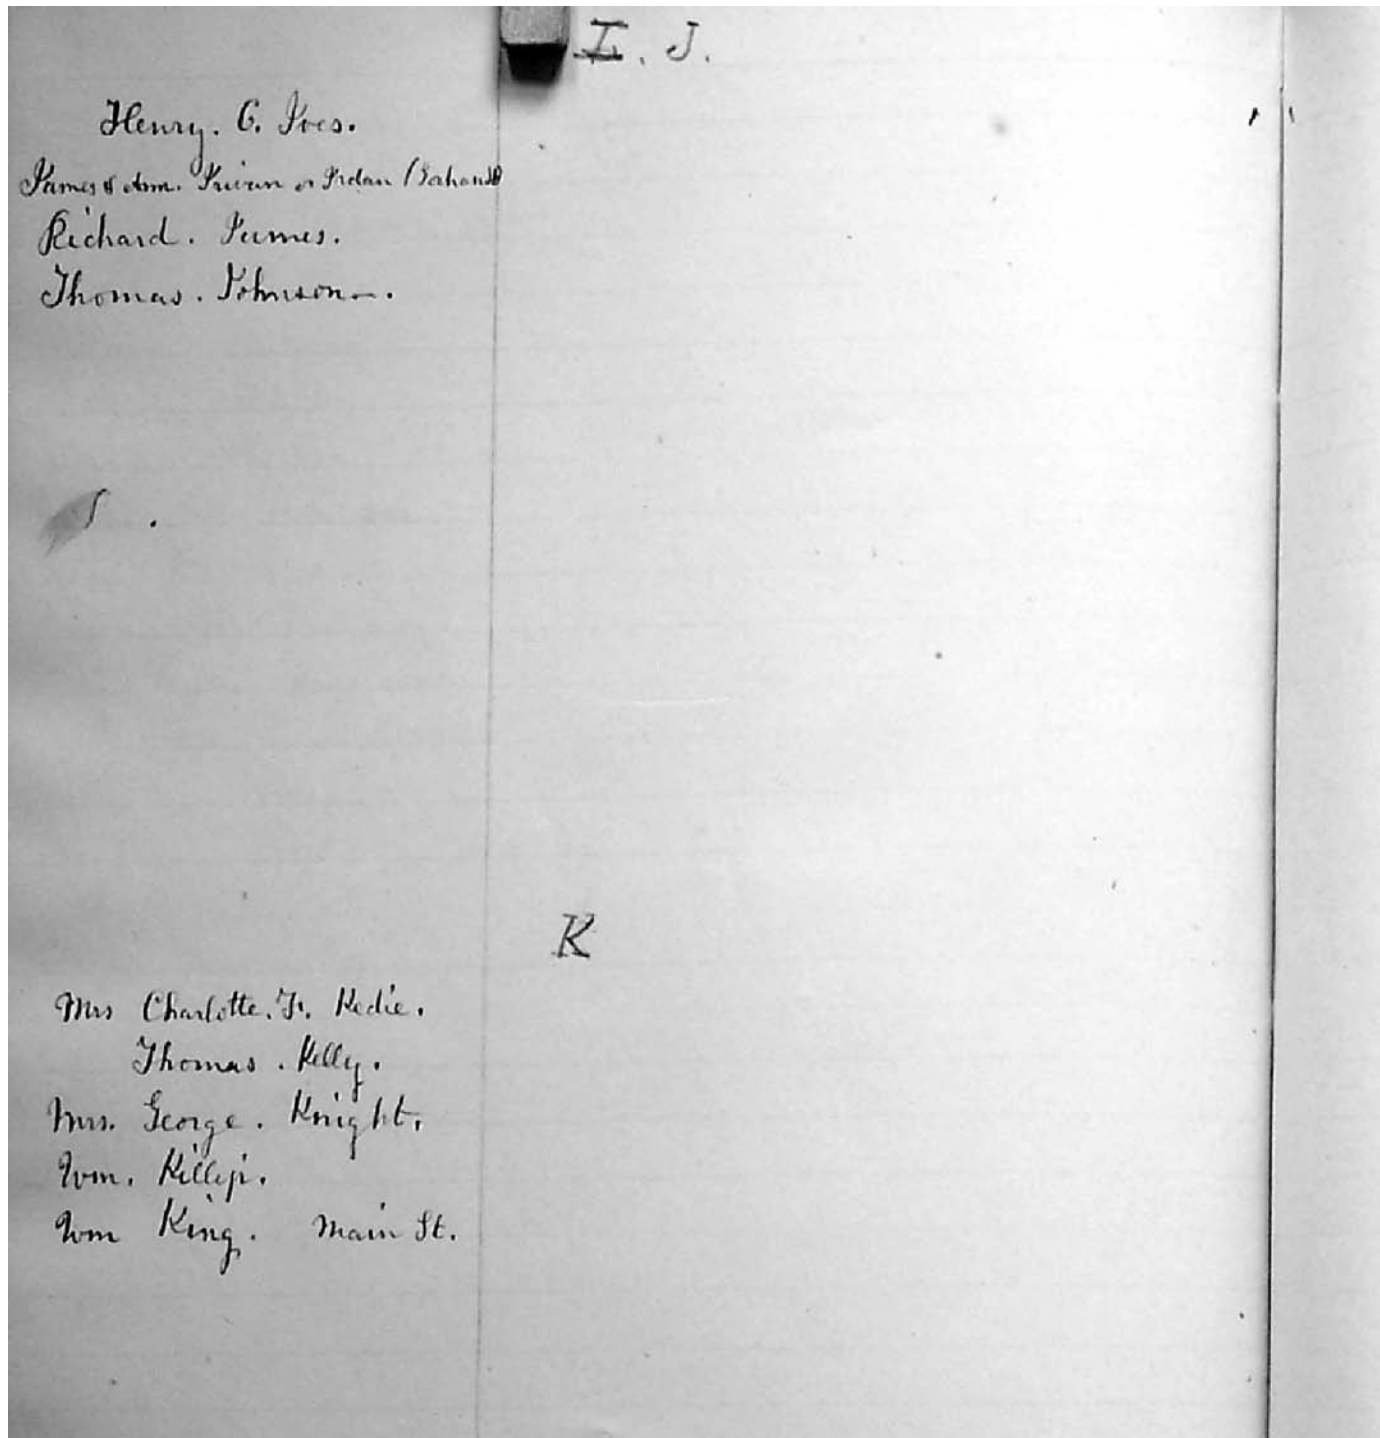 I. J.
Henry. C. Ives.
James & Ann. or
Richard. James.
Thomas. Johnson.
K
Mrs Charlotte. F. Kedie.
Thomas. Kelly.
Mrs. George. Knight.
Wm. Killip.
Wm King. Main St.